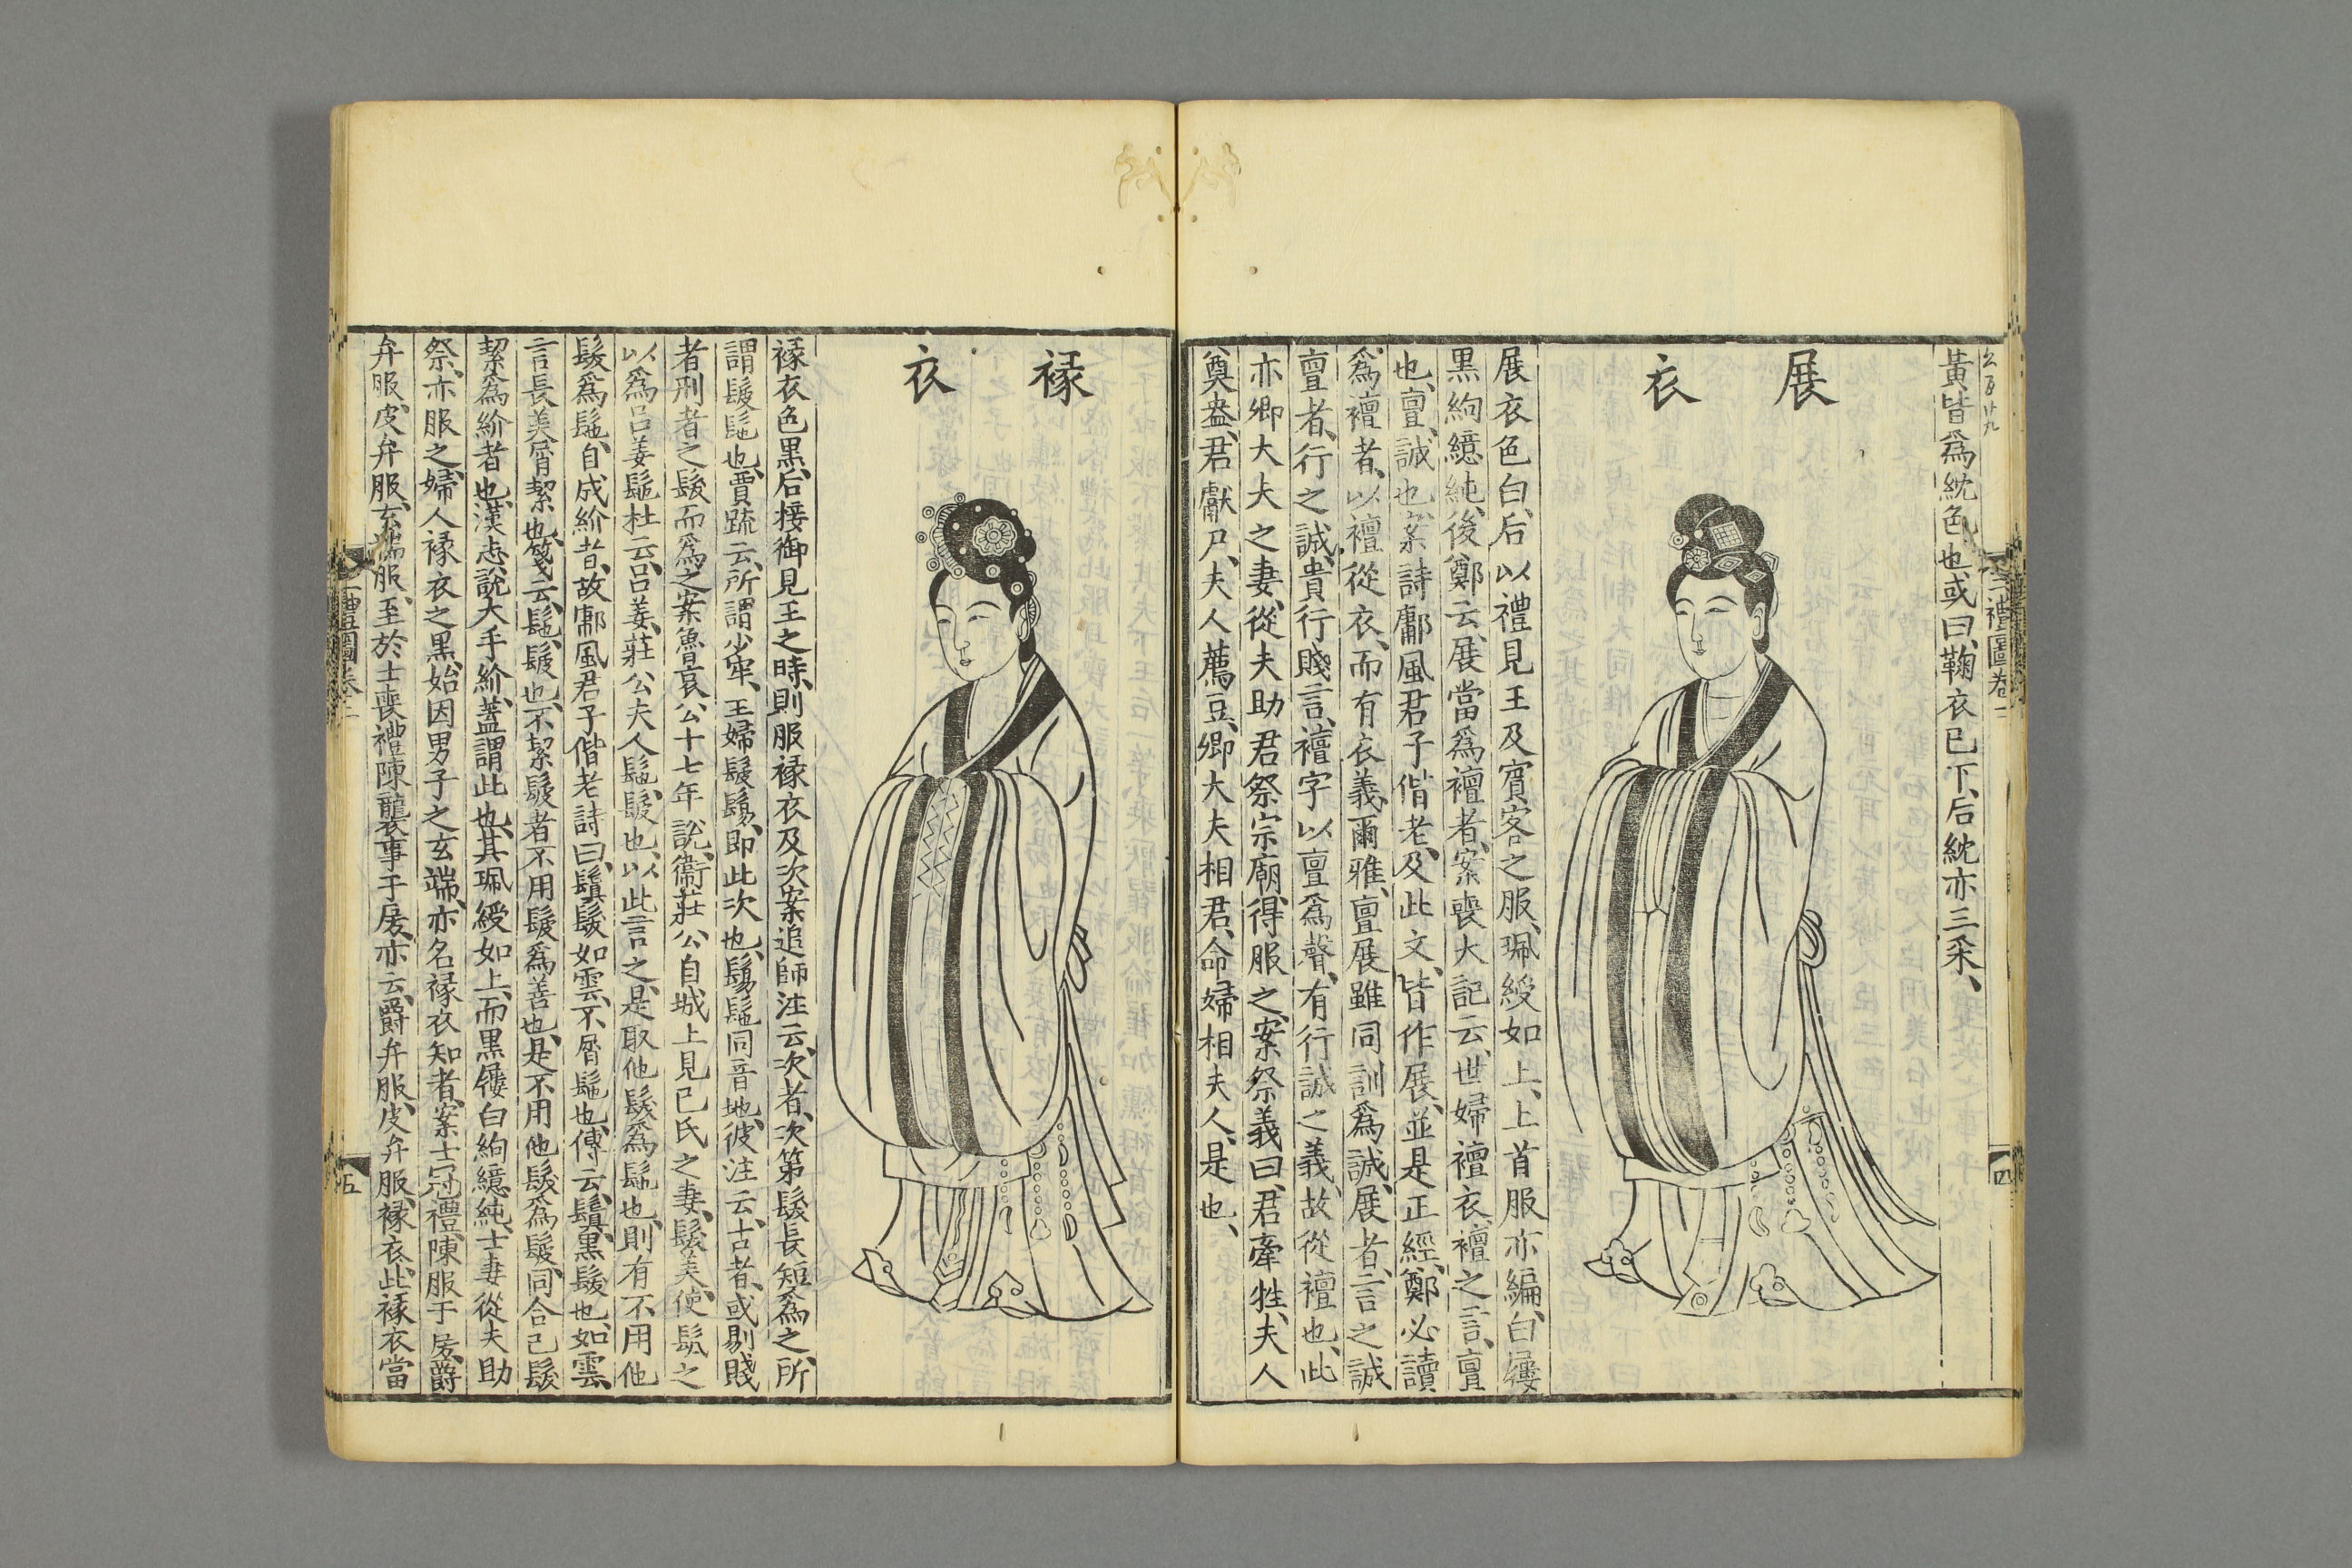 黃皆爲紞色也或曰鞠衣已下后紞亦三采、
展衣
展衣色白、后以禮見王及賓客之服、珮綬如上、上首服亦編、白屨
黒絇繶純、後鄭云、展當爲襢者、案喪大記云、世婦襢衣、襢之言、亶
也、亶、誠也、案詩鄘風君子偕老、及此文、皆作展、並是正經、鄭必讀
爲襢者、以襢從衣、而有衣義、爾雅、亶展雖同訓爲誠、展者、言之誠
亶者、行之誠、貴行賤言、襢字以亶爲聲、有行誠之義、故從襢也、此
亦卿大夫之妻、從夫助君祭宗廟、得服之、案祭義曰、君牽牲、夫人
奠盎、君獻尸、夫人薦豆、卿大夫相君、命婦相夫人、是也、
三禮圖卷二
四
褖衣
褖衣色黒、后接御見王之時、則服褖衣及次、案追師注云、次者、次第髮長短爲之、所
謂髲髢也、賈䟽云、所謂少牢、主婦髲鬄、即此次也、鬄髢同音地、彼注云、古者、或剔賤
者刑者之髮而爲之、案魯哀公十七年說、衞莊公自城上見已氏之妻、髮美、使髠之
以爲呂姜髢、杜云、呂姜、莊公夫人、髢、髲也、以此言之、是取他髮爲髢也、則有不用他
髮爲髢、自成紒者、故鄘風君子偕老詩曰、鬒髮如雲、不屑髢也、傳云、鬒、黒髮也、如雲、
言長美、屑、絜也、箋云、髢、髲也、不絜髲者、不用髲爲善也、是不用他髮爲髲、同合己髮
絜爲紒者也、漢志說大手紒、蓋謂此也、其珮綬如上、而黒屨白絇繶純、士妻從夫助
祭、亦服之、婦人褖衣之黒、始因男子之玄端、亦名褖衣、知者、案士冠禮、陳服于房、爵
弁服、皮弁服、玄端服、至於士喪禮、陳襲事于房、亦云、爵弁服、皮弁服、褖衣、此褖衣當
三禮圖卷二
五